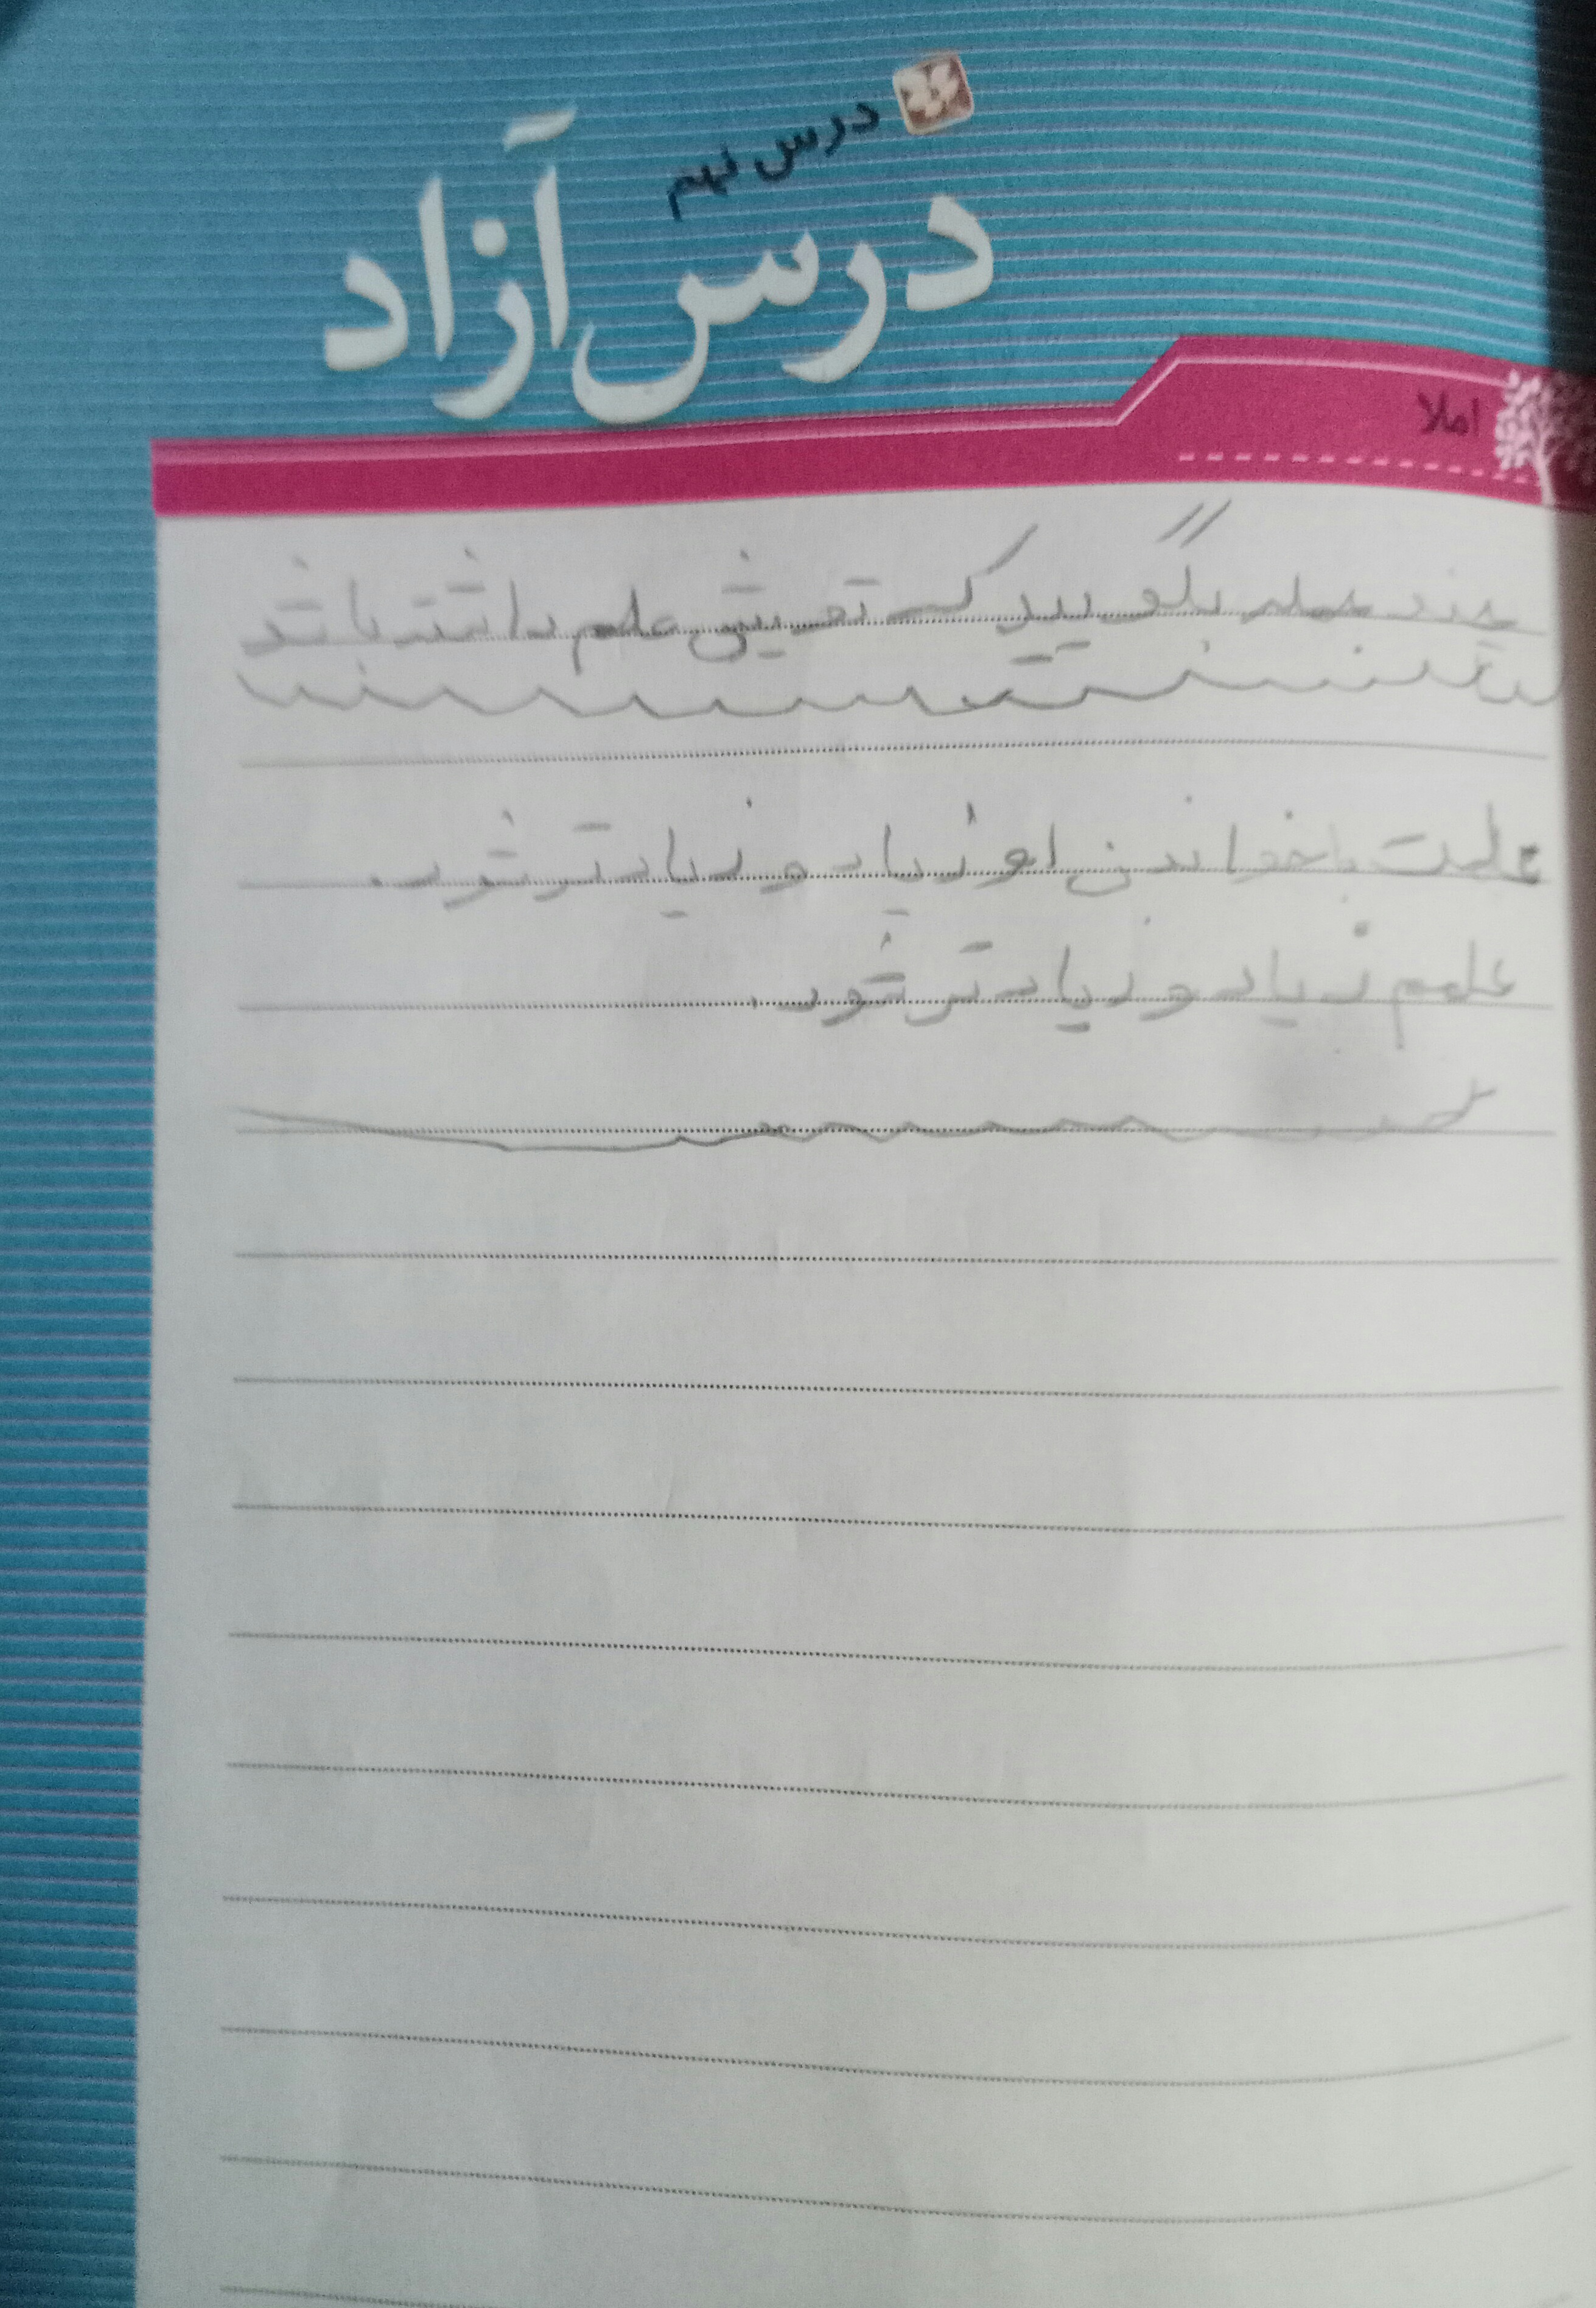 درس نهم
درس آزاد
املا
چند جمله بگویید که تویش علم داشته باشد
علمت با خواندن او زیاد و زیادتر شود.
علم زیاد و زیادتر شود.